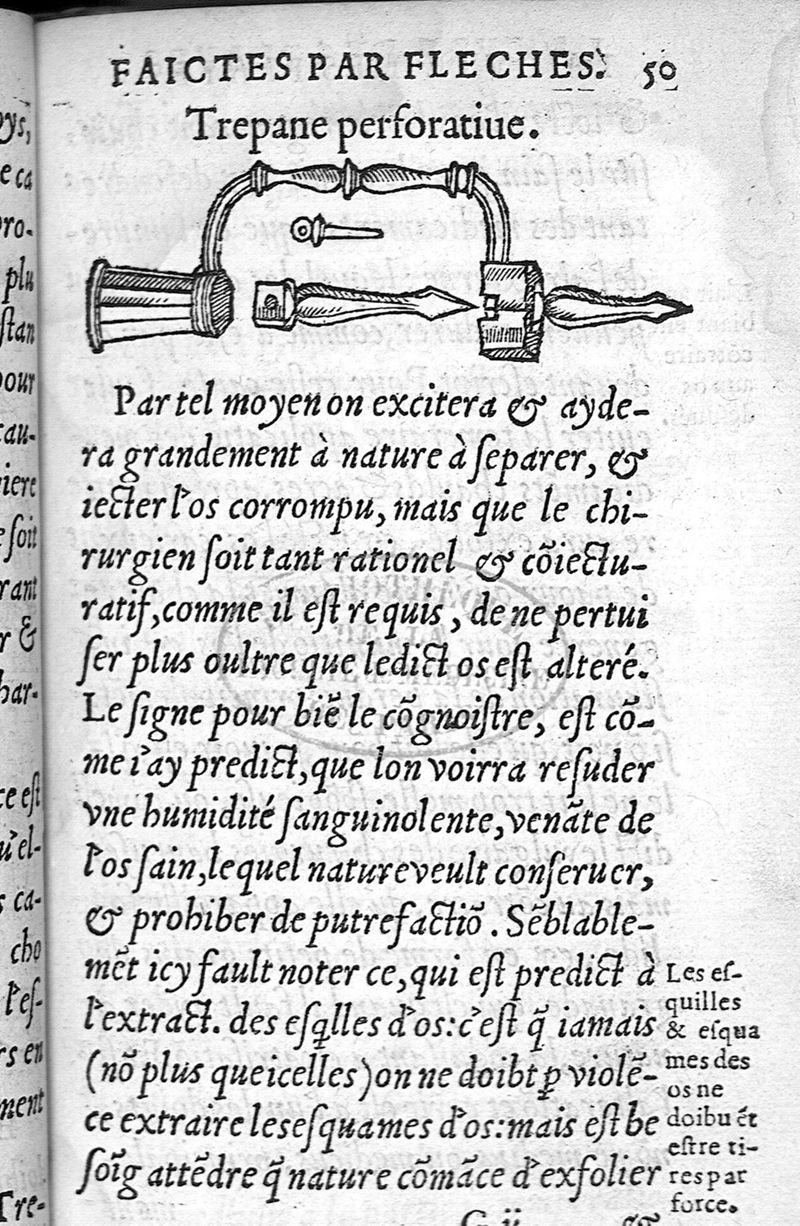 FAICTES PAR FLECHES. 50
Trepane perforatiue.
Par tel moyen on excitera & ayde-
ra grandement à nature à ſeparer, &
iecter l'os corrompu, mais que le chi-
rurgien ſoit tant rationel & cõiectu-
ratif, comme il eſt requis, de ne pertui
ſer plus oultre que ledict os eſt alteré.
Le ſigne pour biẽ le cõgnoiſtre, eſt cõ-
me i'ay predict, que lon voirra reſuder
vne humidité ſanguinolente, venãte de
l'os ſain, lequel nature veult conſeruer,
& prohiber de putrefactiõ. Sẽblable-
mẽt icy fault noter ce, qui eſt predict à
l'extract. des eſq̃lles d'os: c'eſt q̃ iamais
(nõ plus que icelles) on ne doibt ꝑ violẽ-
ce extraire les eſquames d'os: mais eſt be
ſoĩg attẽdre q̃ nature cõmãce d'exfolier
Les eſ-
quilles
& eſqua
mes des
os ne
doibuẽt
eſtre ti-
res par
force.
G ij &
ys,
e ca
ro-
plu
ſtan
pour
cau-
iere
e ſoit
rant
r &
har-
ce eſt
u'el-
s ca-
cho
l'eſ-
rs en
ment
Tre-